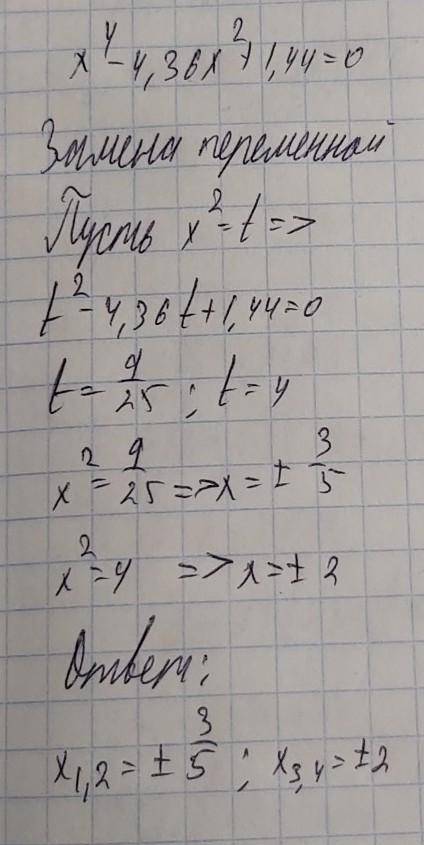 x⁴ - 4,36x² + 1,44 = 0
Замена переменной
Пусть x² = t =>
t² - 4,36t + 1,44 = 0
t = 9/25 ; t = 4
x² = 9/25 => x = ± 3/5
x² = 4 => x = ± 2
Ответ:
x₁,₂ = ± 3/5 ; x₃,₄ = ±2